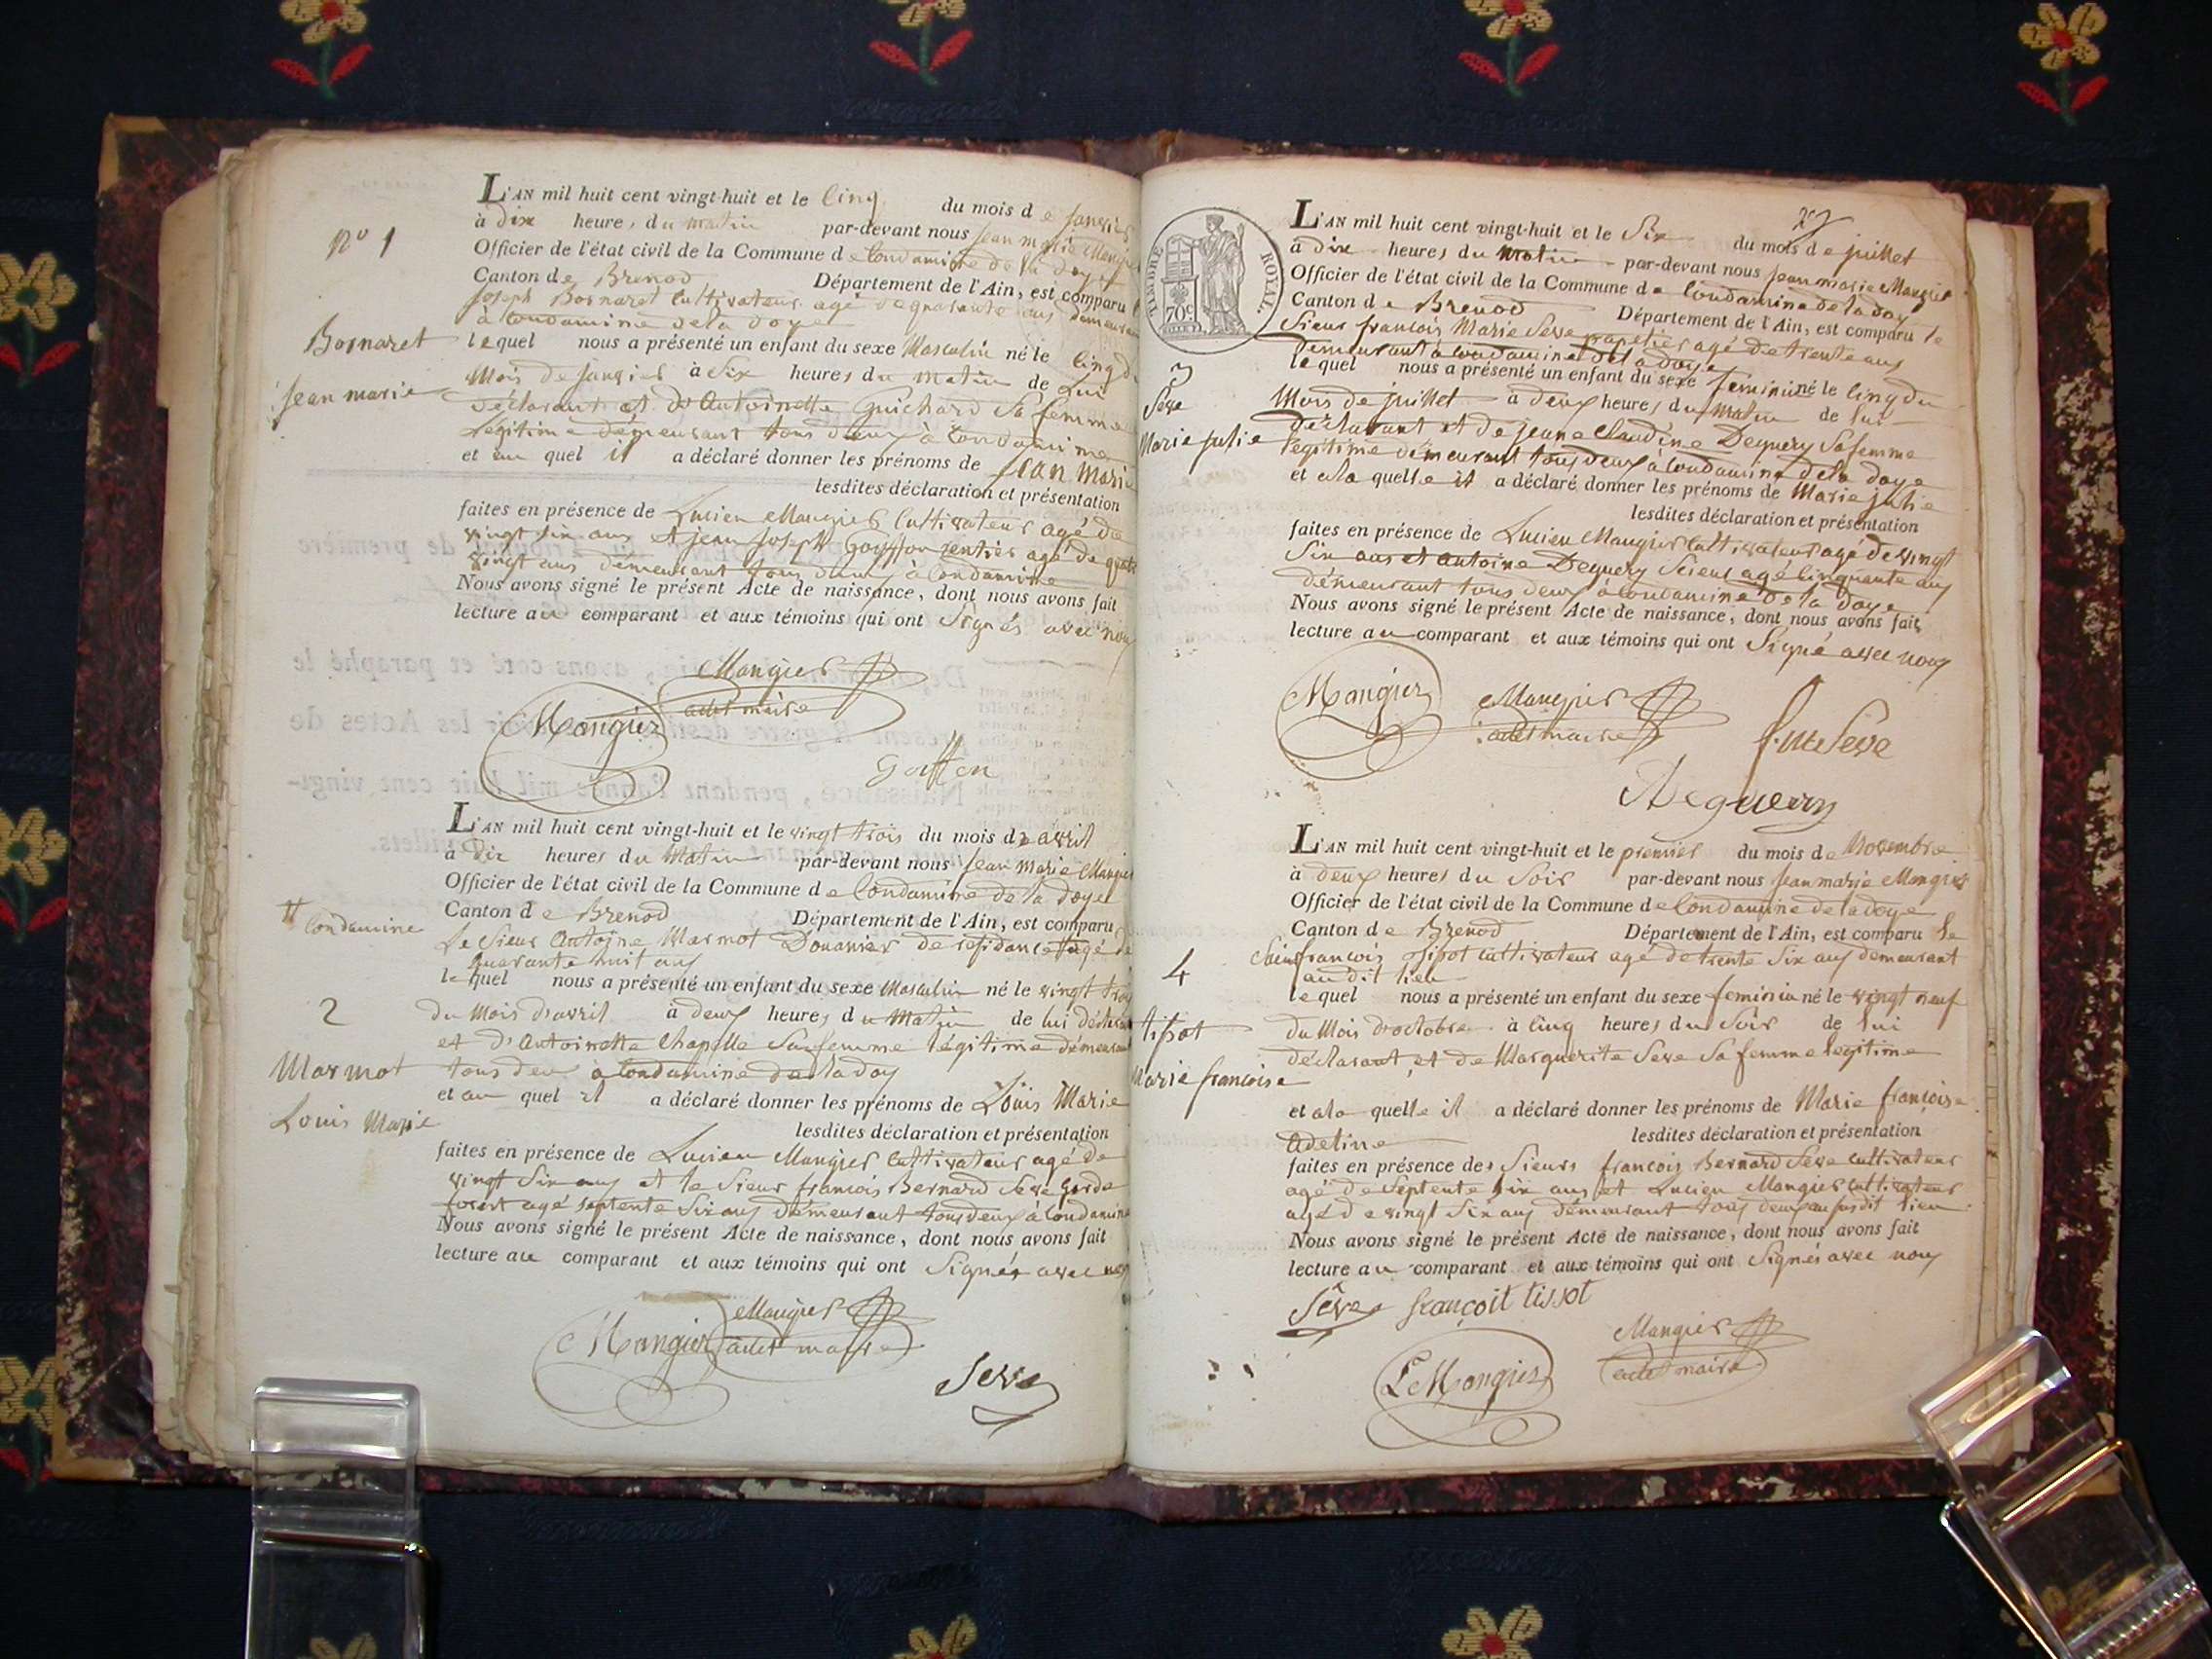 L'AN mil huit cent vingt-huit et le Cinq du mois de janvier
à dix heures du matin par-devant nous jean marie Mangier
Officier de l'état civil de la Commune de Condamine de la doye
Canton de Brenod Département de l'Ain, est comparu
joseph Bornaret Cultivateur agé de quarante ans demeurant
à Condamine de la doye
lequel nous a présenté un enfant du sexe Masculin né le Cinq du
Mois de janvier à Six heures du matin de Lui
déclarant et d'Antoinette Guichard Sa femme
Legitime demeurant tous deux à Condamine
et au quel il a déclaré donner les prénoms de Jean Marie
lesdites déclaration et présentation
faites en présence de Lucien Mangier Cultivateur agé de
vingt six ans et jean joseph Goiffon rentier agé de quatre
vingt ans demeurant tous deux à Condamine
Nous avons signé le présent Acte de naissance, dont nous avons fait
lecture au comparant et aux témoins qui ont Signés avec nous
N° 1
Bornaret
jean marie
Mangier
adet maire
Mangier
Goiffon
L'AN mil huit cent vingt-huit et le vingt trois du mois de avril
à dix heures du Matin par-devant nous jean Marie Mangier
Officier de l'état civil de la Commune de Condamine de la doye
Canton de Brenod Département de l'Ain, est comparu
Le Sieur Antoine Marmot Douanier de residance agé de
quarante huit ans
lequel nous a présenté un enfant du sexe Masculin né le vingt trois
du Mois d'avril à deux heures du Matin de lui déclarant
et d'Antoinette Chapelle Sa femme légitime démeurant
tous deux à Condamine de la doy
et au quel il a déclaré donner les prénoms de Loüis Marie
lesdites déclaration et présentation
faites en présence de Lucien Mangier Cultivateur agé de
vingt Six ans et le Sieur francois Bernard Seve Garde
forêt agé septente Six ans démeurant tous deux à Condamine
Nous avons signé le présent Acte de naissance, dont nous avons fait
lecture au comparant et aux témoins qui ont Signés avec nous
Condamine
2
Marmot
Louis Marie
Mangier
Mangier adet maire
Seve
TIMBRE ROYAL
70c
L'AN mil huit cent vingt-huit et le Six du mois de juillet
à dix heures du Matin par-devant nous jean marie Mangier
Officier de l'état civil de la Commune de Condamine de la doy
Canton de Brenod Département de l'Ain, est comparu le
Sieur francois Marie Seve papetier agé de trente ans
demeurant à Condamine de la doye
lequel nous a présenté un enfant du sexe féminin né le Cinq du
Mois de juillet à deux heures du Matin de lui
déclarant et de jeane Claudine Deguery Sa femme
légitime démeurant tous deux à Condamine de la doye
et a la quelle il a déclaré donner les prénoms de Marie julie
lesdites déclaration et présentation
faites en présence de Lucien Mangier Cultivateur agé de vingt
Six ans et antoine Deguery Scieur agé Cinquante ans
démeurant tous deux à Condamine de la doye
Nous avons signé le présent Acte de naissance, dont nous avons fait
lecture au comparant et aux témoins qui ont Signé avec nous
3
Seve
Marie julie
Mangier
Mangier
adet maire
f. M Seve
Deguery
L'AN mil huit cent vingt-huit et le premier du mois de Novembre
à deux heures du Soir par-devant nous jean marie Mangier
Officier de l'état civil de la Commune de Condamine de la doye
Canton de Brenod Département de l'Ain, est comparu le
Sieur francois tisot cultivateur agé de trente Six ans demeurant
au dit lieu
lequel nous a présenté un enfant du sexe feminin né le vingt neuf
du Mois d'octobre à Cinq heures du Soir de lui
déclarant, et de Marguerite Seve Sa femme légitime
et a la quelle il a déclaré donner les prénoms de Marie françoise
Adeline lesdites déclaration et présentation
faites en présence des Sieurs francois Bernard Seve cultivateur
agé de Septente six ans et Lucien Mangier cultivateur
agé de vingt Six ans démeurant tous deux au susdit lieu
Nous avons signé le présent Acte de naissance, dont nous avons fait
lecture au comparant et aux témoins qui ont Signés avec nous
4
tisot
Marie francoise
Sève françoit tissot
Mangier
adet maire
L Mangier